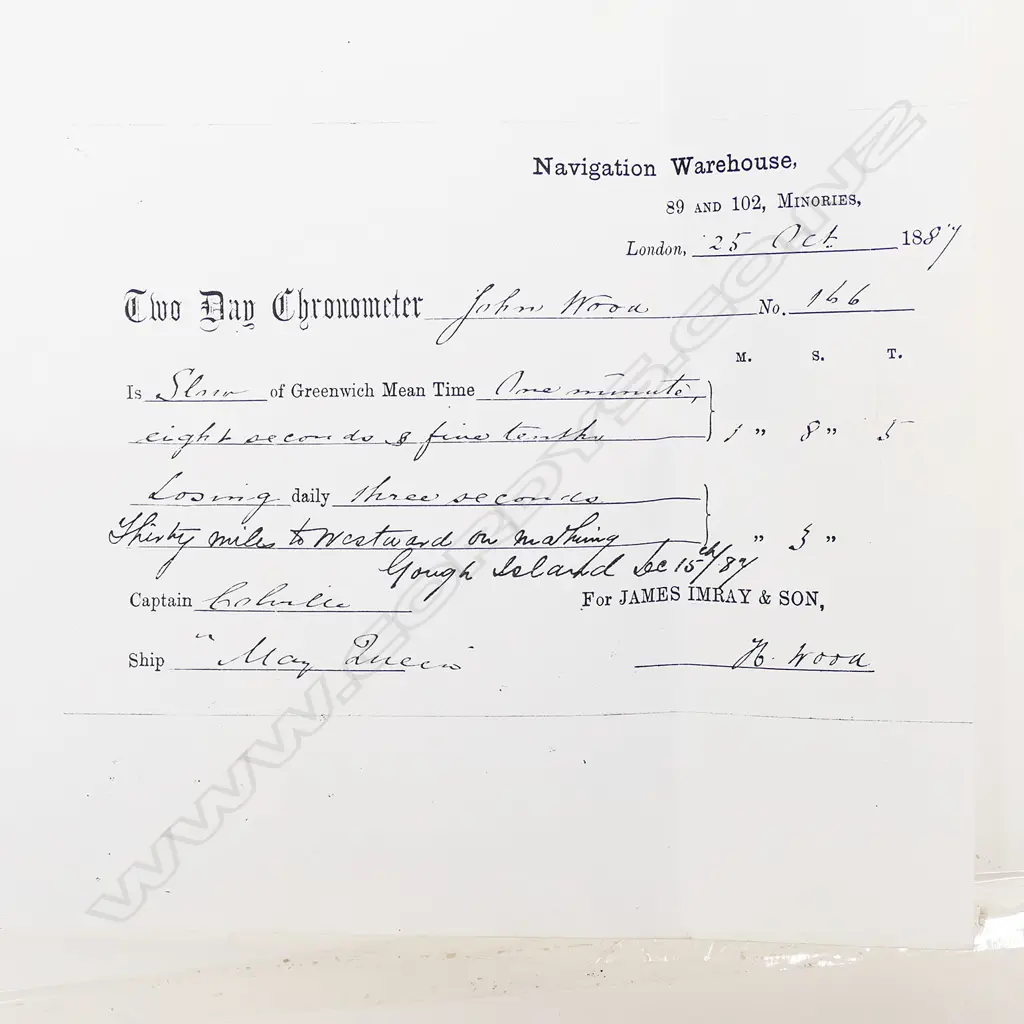 Navigation Warehouse,
89 AND 102, MINORIES,
London, 25 Oct. 1887
Two Day Chronometer John Wood No. 166
M. S. T.
Is Slow of Greenwich Mean Time One minute,
eight seconds & five tenths 1 " 8 " 5
Losing daily three seconds
Thirty miles to Westward on making " 3 "
Gough Island Dec 15th/87
Captain Colville For JAMES IMRAY & SON,
Ship "May Queen" H. Wood
WWW.CORDYS.CO.NZ